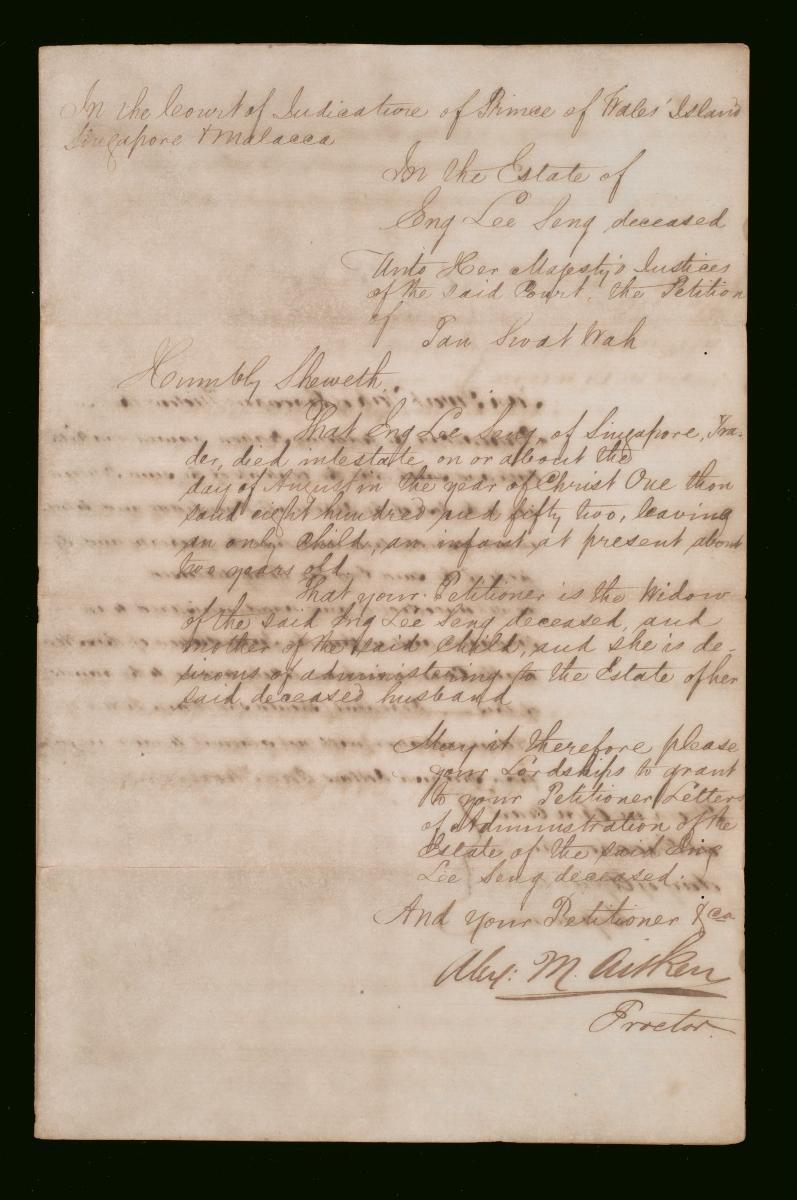 In the Court of Judicature of Prince of Wales' Island
Singapore & Malacca
In the Estate of
Eng Lee Seng deceased
Unto Her Majesty's Justices
of the said Court, the Petition
of
Tan Swat Wah
Humbly Sheweth
That Eng Lee Seng of Singapore, Tra-
der, died intestate on or about the
day of August in the year of Christ One thou
sand eight hundred and fifty two, leaving
an only child, an infant at present about
two years old.
That your Petitioner is the Widow
of the said Eng Lee Seng deceased, and
mother of the said child, and she is de-
sirous of administering to the Estate of her
said deceased husband
May it therefore please
your Lordships to grant
to your Petitioner Letters
of Administration of the
Estate of the said Eng
Lee Seng deceased.
And your Petitioner &ca
Alex: M. Aitken
Proctor